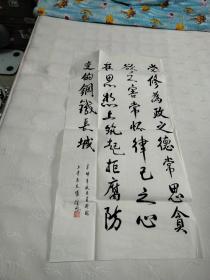 常修為政之德常思貪
欲之害常怀律己之心
在思想上筑起拒腐防
变的鋼鐵長城